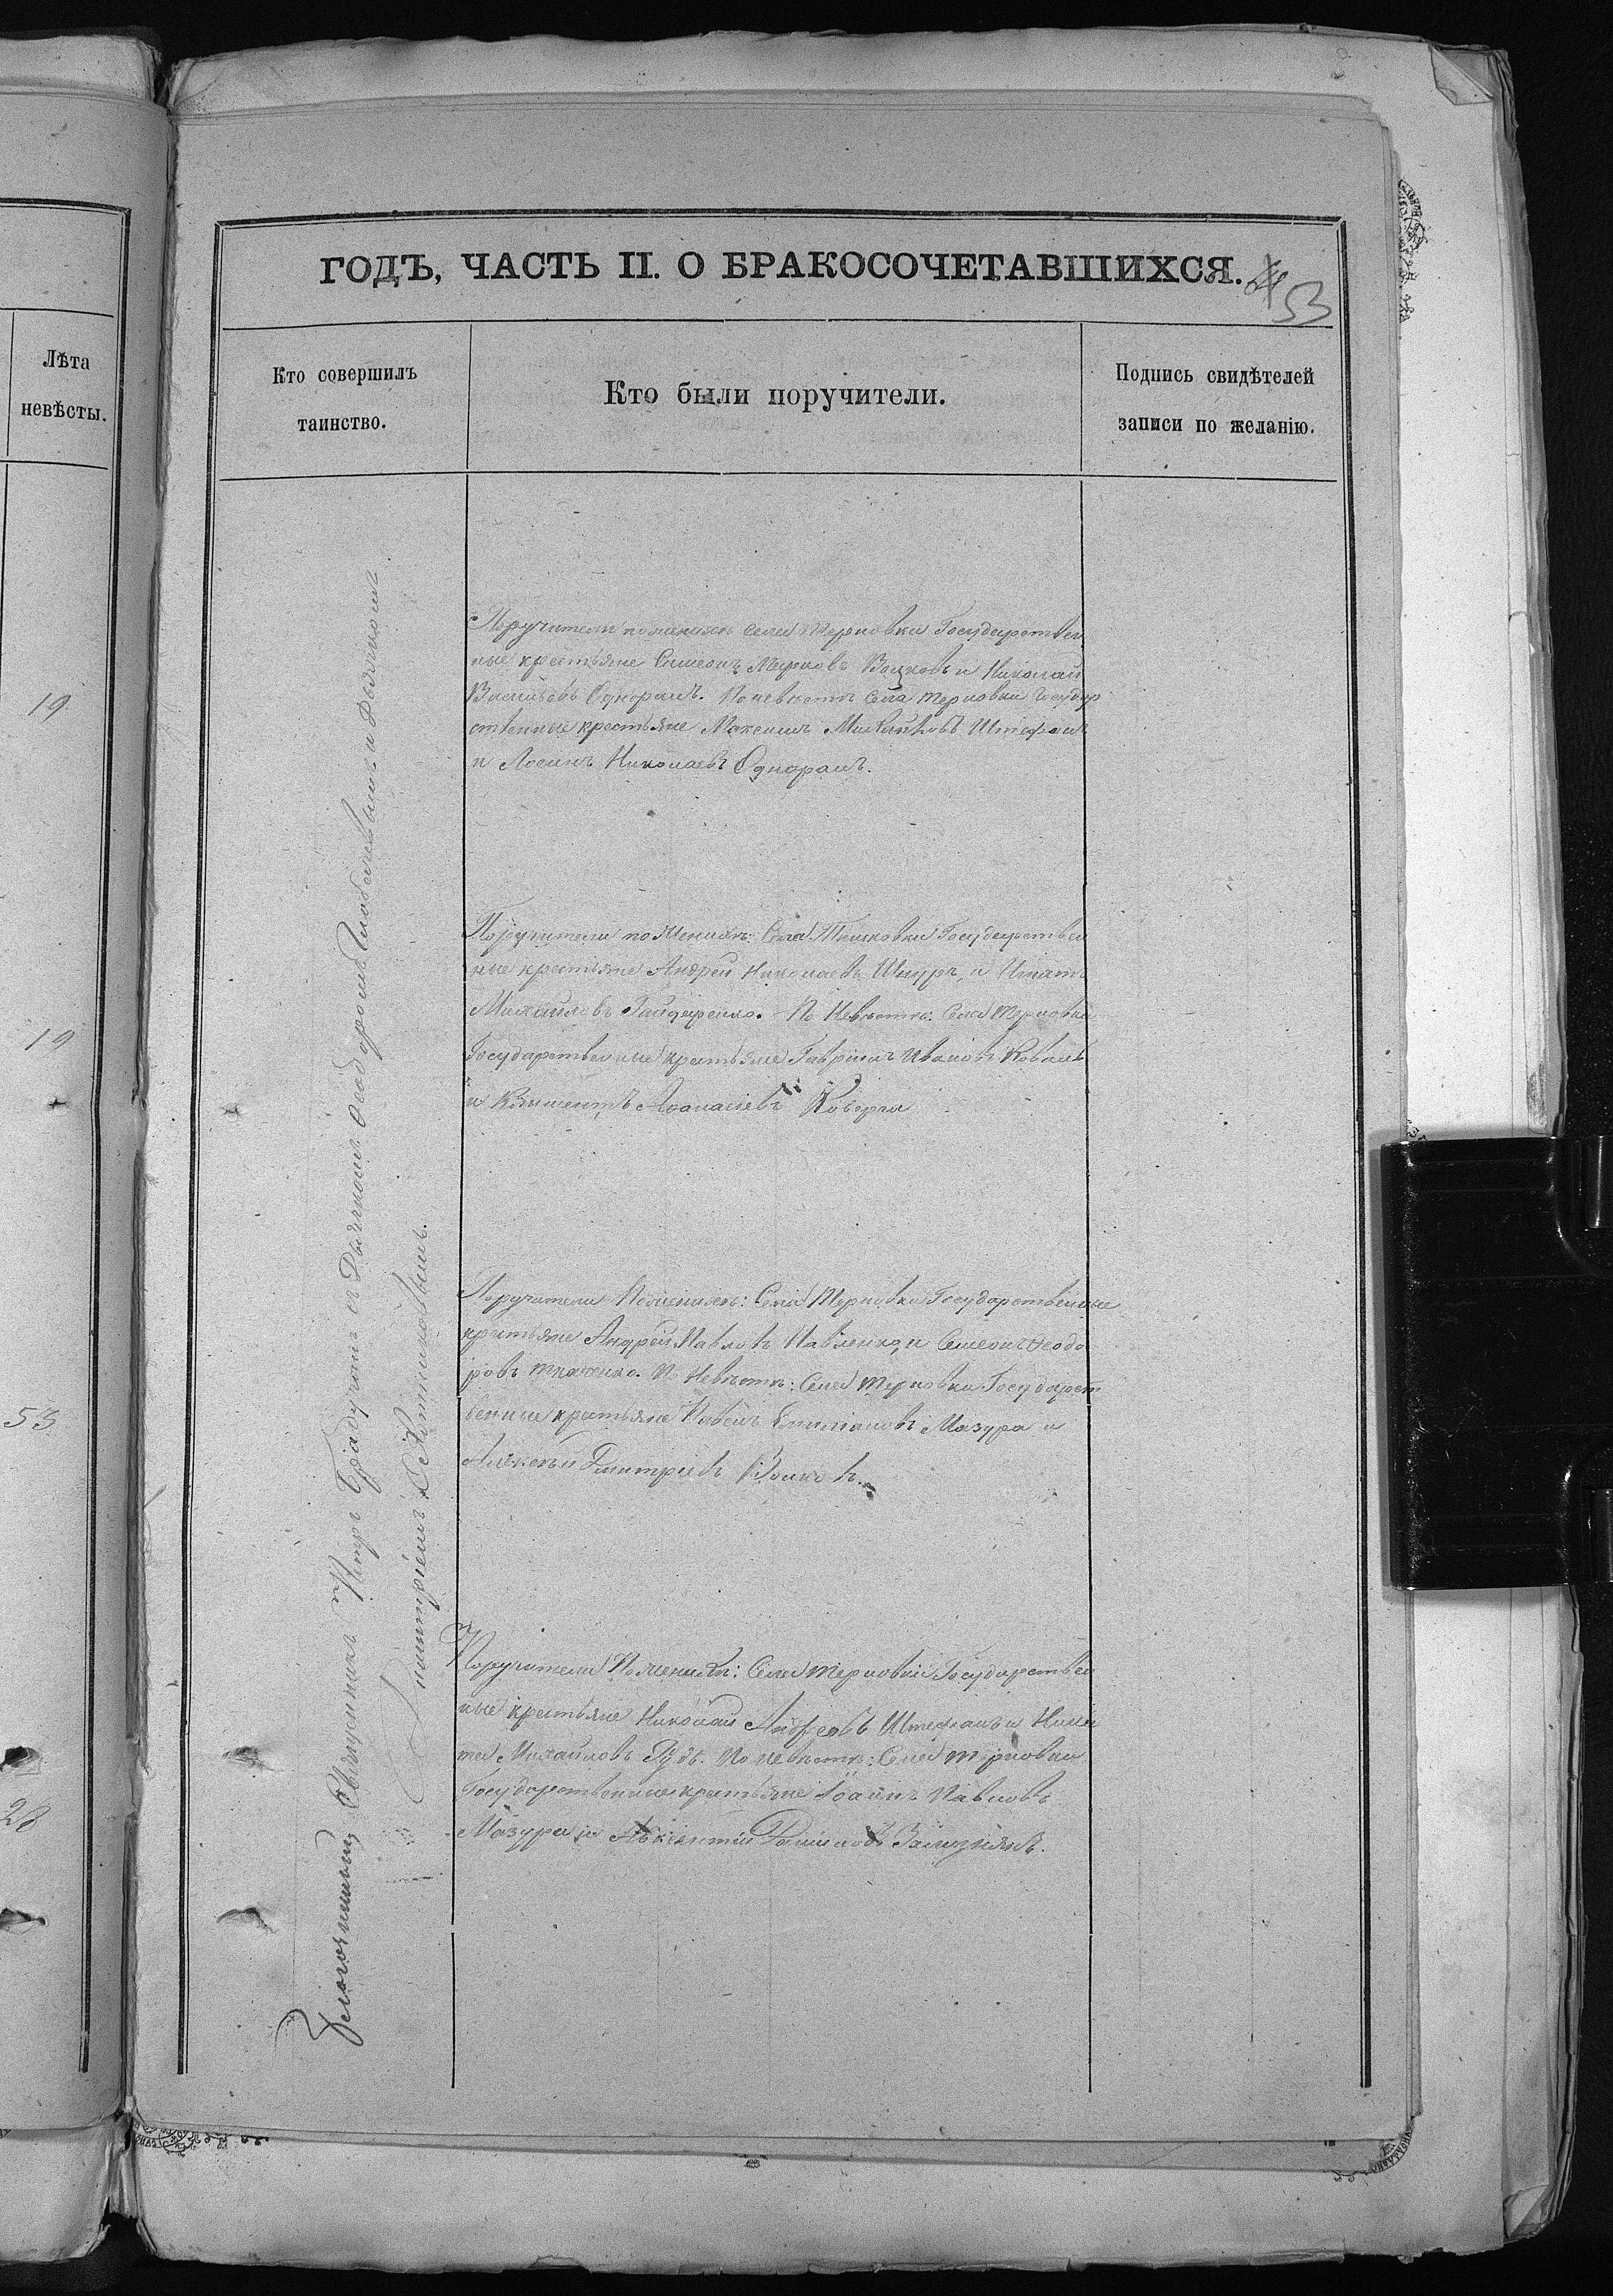 Лѣта
невѣсты.
19
19
53
28
ГОДЪ, ЧАСТЬ II. О БРАКОСОЧЕТАВШИХСЯ.
53
Кто совершилъ
таинство.
Кто были поручители.
Подпись свидѣтелей
записи по желанію.
Священникъ Петръ съ Дьячкомъ и Дьячкомъ
Димитріемъ
Поручители по женихѣ Села Терновки Государствен
ные крестьяне Симеонъ Марковъ Волковъ и Николай
Васильевъ Однорамъ. По невѣстѣ Села Терновки Государ
ственные крестьяне Максимъ Михайловъ Штефанъ
и Логинъ Николаевъ Однорамъ.
Поручители по Женихѣ: Села Государствен
ные крестьяне Андрей Николаевъ и Игнатъ
Михайловъ Гайдаренко. По Невѣстѣ: Села Терновки
Государственные крестьяне Гавріилъ Ивановъ Коваль
и Климентъ Афанасіевъ Коверга
Поручители По женихѣ: Села Терновки Государственные
крестьяне Андрей Павловъ Павленко, и Симеонъ Ѳеодо
ровъ Ткаченко. По Невѣстѣ: Села Терновки Государст
венные крестьяне Павелъ Емиліановъ Мазура и
Алексѣй Димитріевъ Волковъ.
Поручители По женихѣ: Села Терновки Государствен
ные крестьяне Николай Андреевъ Штефанъ и Ники
та Михайловъ Рудь. По невѣстѣ: Села Терновки
Государственные крестьяне Іоаннъ Павловъ
Мазура и Авксентій Зализнякъ.